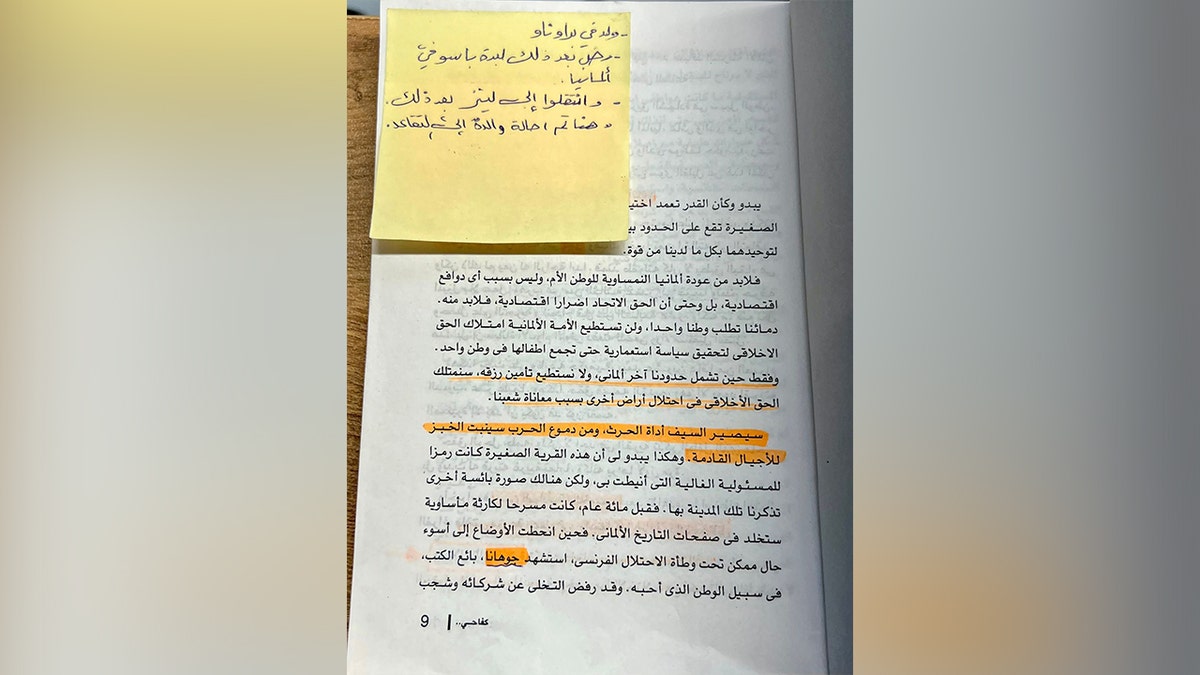 - ولد في براوناو
- رحل بعد ذلك لبدة باسو في
ألمانيا.
- وانتقلوا إلى لينز بعد ذلك.
* هنا تم احالة والدة إلى التقاعد.
يبدو وكأن القدر تعمد اختي
الصغيرة تقع على الحدود بي
لتوحيدهما بكل ما لدينا من قوة.
فلابد من عودة ألمانيا النمساوية للوطن الأم، وليس بسبب أى دوافع
اقتصادية، بل وحتى أن الحق الاتحاد اضرارا اقتصادية، فلابد منه.
دمائنا تطلب وطنا واحدا، ولن تستطيع الأمة الألمانية امتلاك الحق
الاخلاقى لتحقيق سياسة استعمارية حتى تجمع اطفالها فى وطن واحد.
وفقط حين تشمل حدودنا آخر ألمانى، ولا نستطيع تأمين رزقه، سنمتلك
الحق الأخلاقى فى احتلال أراض أخرى بسبب معاناة شعبنا.
سيصير السيف أداة الحرث، ومن دموع الحرب سينبت الخبز
للأجيال القادمة. وهكذا يبدو لى أن هذه القرية الصغيرة كانت رمزا
للمسئولية الغالية التى أنيطت بى، ولكن هنالك صورة بائسة أخرى
تذكرنا تلك المدينة بها. فقبل مائة عام، كانت مسرحا لكارثة مأساوية
ستخلد فى صفحات التاريخ الألمانى. فحين انحطت الأوضاع إلى أسوء
حال ممكن تحت وطأة الاحتلال الفرنسى، استشهد جوهانا، بائع الكتب،
فى سبيل الوطن الذى أحبه. وقد رفض التخلى عن شركائه وشجب
كفاحي.. | 9